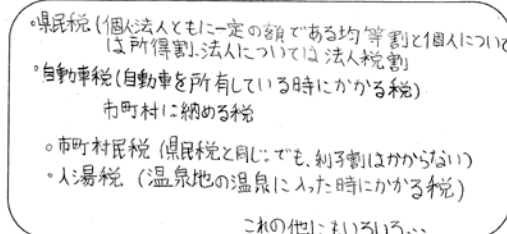 ◦県民税(個人法人ともに一定の額である均等割と個人について
は所得割、法人については法人税割
◦自動車税(自動車を所有している時にかかる税)
市町村に納める税
◦市町村民税(県民税と同じ。でも、利子割はかからない)
◦入湯税(温泉地の温泉に入った時にかかる税)
これの他にもいろいろ…